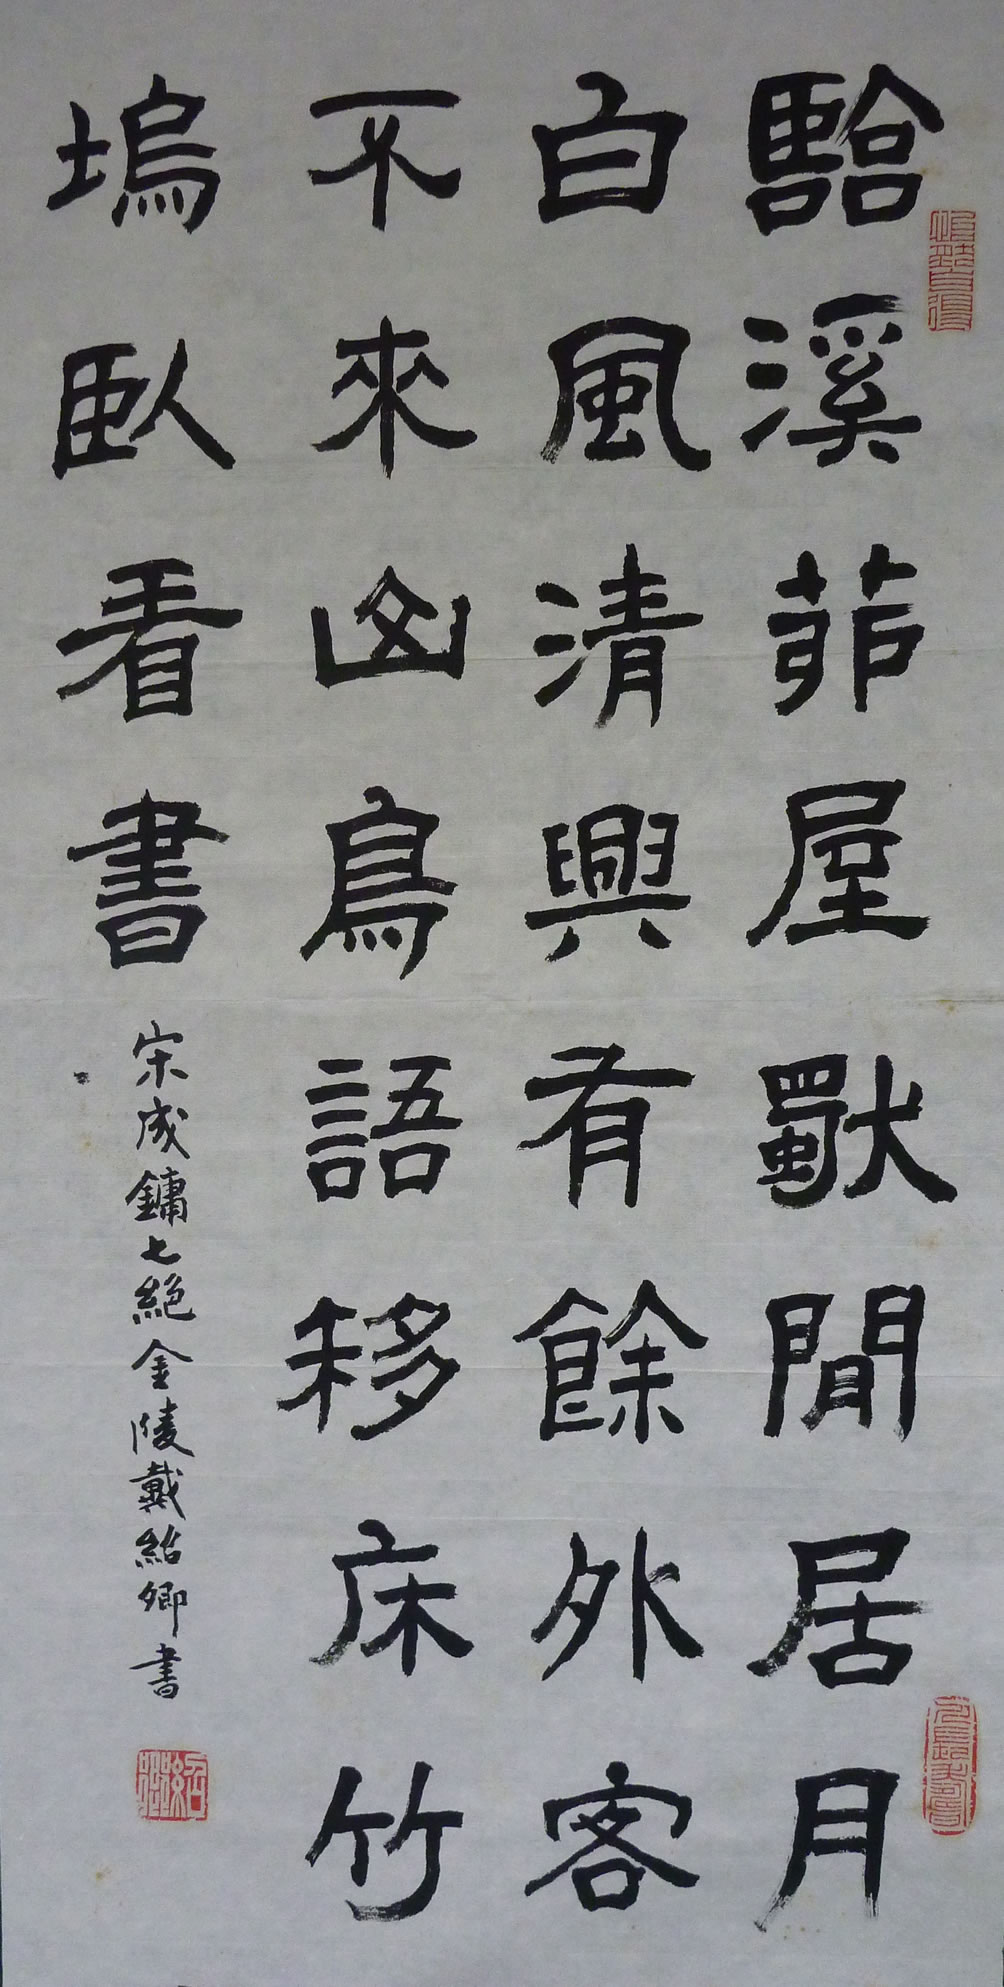 臨溪茆屋獨閒居月
白風清興有餘外客
不來山鳥語移床竹
塢臥看書
宋成鏞七絕金陵戴紹卿書